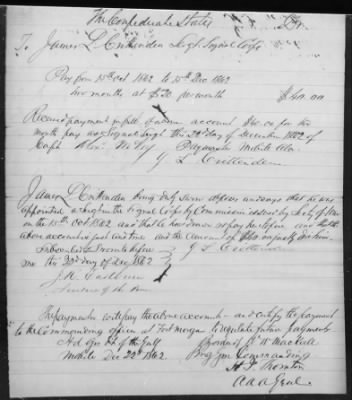 The Confederate States Dr.
To James L Crittenden Sergt Signal Corps
Pay from 15th Oct 1862 to 15th Dec 1862
two months at $20 per month $40.00
Received payment in full of above account
month pay as Signal Sergt this 22d day of December 1862 of
Capt Alex. McVoy Paymaster Mobile Ala.
J L Crittenden
James L Crittenden being duly sworn deposes and says that he was
appointed a Sergt in the Signal Corps by Commission issued by Secty of War
on the 15th Oct 1862, and that he has drawn no pay heretofore and that the
above account is just and true and the amount of $40 is justly due him.
Subscribed & sworn to before J L Crittenden
me this 22d day of Dec 1862
The paymaster will pay the above account and certify the payment
to the Commanding officer at Fort Morgan to regulate future payments
Hd Qrs of the Gulf By order of W W Mackall
Mobile Dec 22d 1862. Brig Gen Commanding
H. Thornton
A A A Genl.